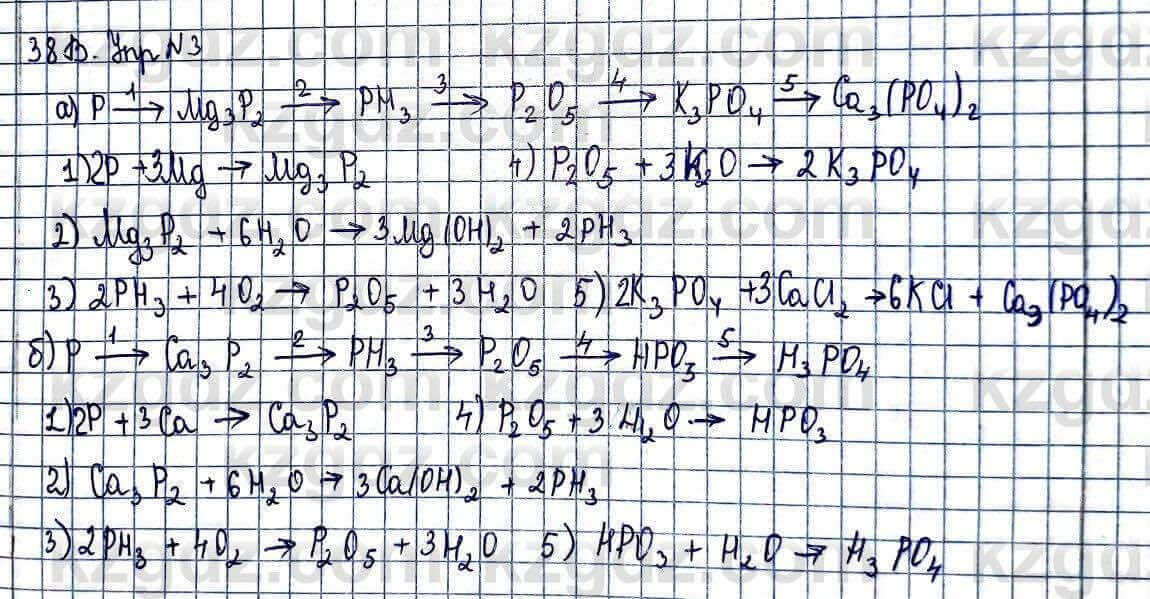 38В. Упр N3
а) P —1→ Mg₃P₂ —2→ PH₃ —3→ P₂O₅ —4→ K₃PO₄ —5→ Ca₃(PO₄)₂
1) 2P + 3Mg → Mg₃P₂ 4) P₂O₅ + 3K₂O → 2K₃PO₄
2) Mg₃P₂ + 6H₂O → 3Mg(OH)₂ + 2PH₃
3) 2PH₃ + 4O₂ → P₂O₅ + 3H₂O 5) 2K₃PO₄ + 3CaCl₂ → 6KCl + Ca₃(PO₄)₂
б) P —1→ Ca₃P₂ —2→ PH₃ —3→ P₂O₅ —4→ HPO₃ —5→ H₃PO₄
1) 2P + 3Ca → Ca₃P₂ 4) P₂O₅ + 3H₂O → HPO₃
2) Ca₃P₂ + 6H₂O → 3Ca(OH)₂ + 2PH₃
3) 2PH₃ + 4O₂ → P₂O₅ + 3H₂O 5) HPO₃ + H₂O → H₃PO₄
kzgdz.com